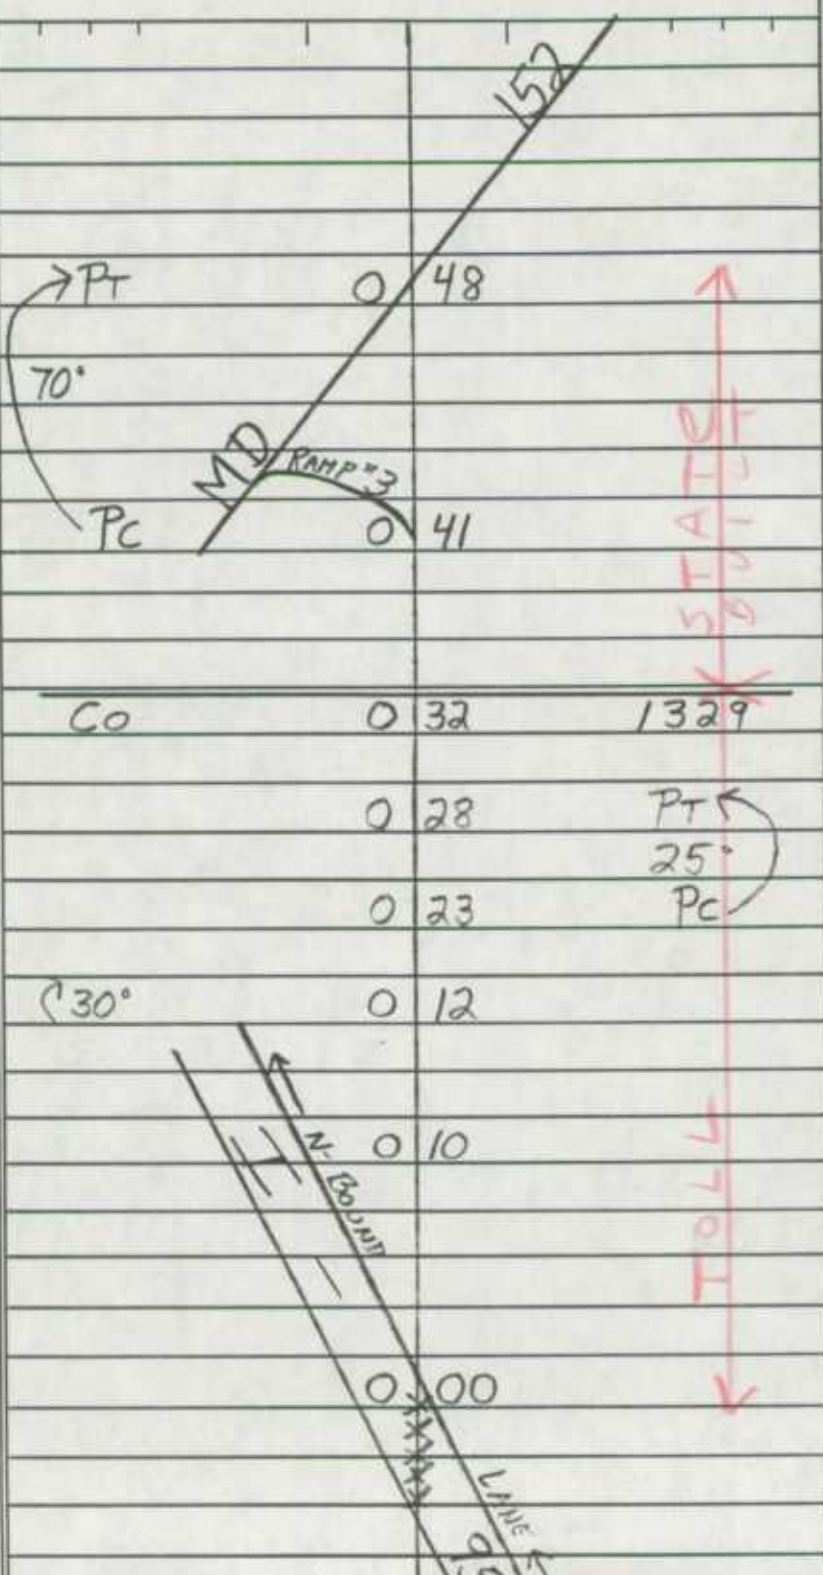 152
PT 0 48
70°
MD RAMP #3
PC 0 41
STATE
BUILT
CO 0 32 1329
0 28 PT
25°
0 23 PC
30° 0 12
0 10
N-BOUND
I
TOLL
0 00
LANE
95